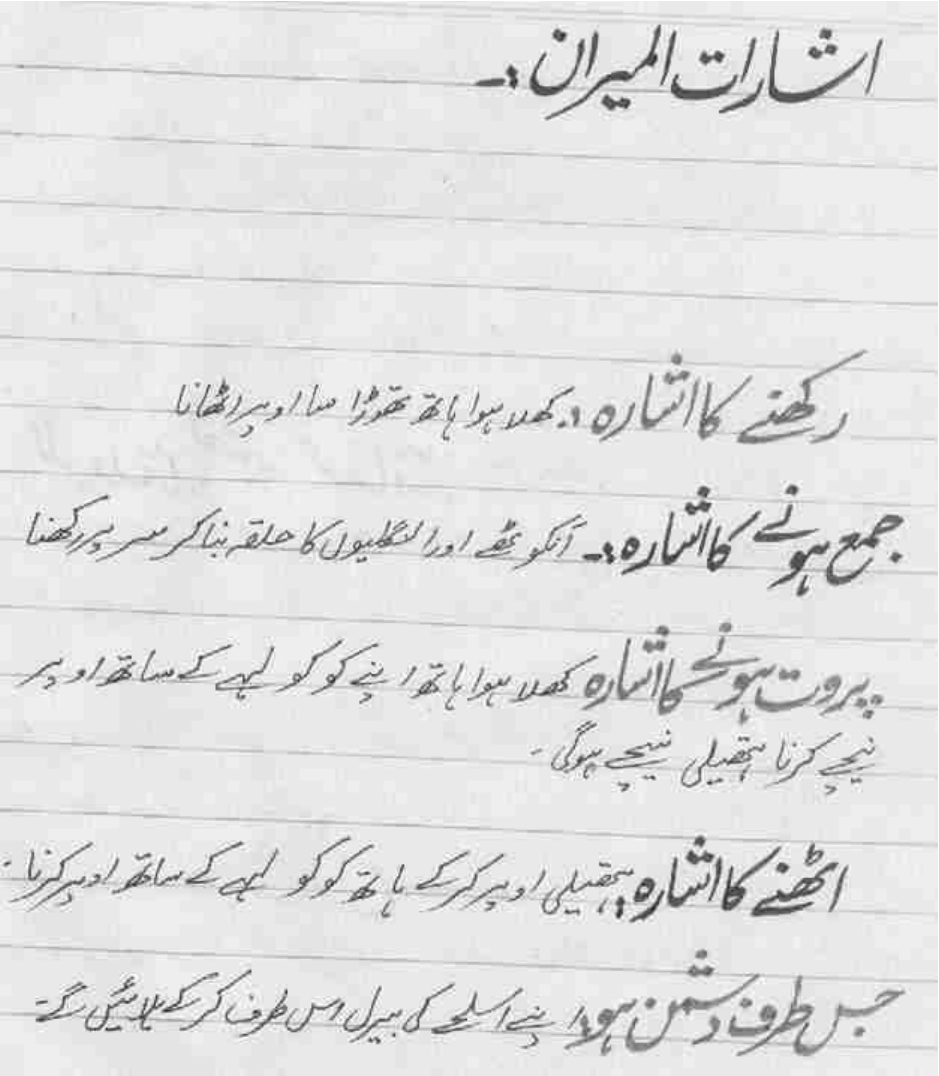 اشارات المیران :۔
رکھنے کا اشارہ :۔ کھلا ہوا ہاتھ تھوڑا سا اوپر اٹھانا
جمع ہونے کا اشارہ :۔ انگوٹھے اور انگلیوں کا حلقہ بنا کر سر پر رکھنا
پروت ہونے کا اشارہ کھلا ہوا ہاتھ اپنے کوکو لہے کے ساتھ اوپر
نیچے کرنا ہتھیلی نیچے ہوگی ۔
اٹھنے کا اشارہ :۔ ہتھیلی اوپر کر کے ہاتھ کوکو لہے کے ساتھ اوپر کرنا ۔
جس طرف دشمن ہو :۔ اپنے اسلحے کی بیرل اس طرف کر کے ہلائیں گے ۔